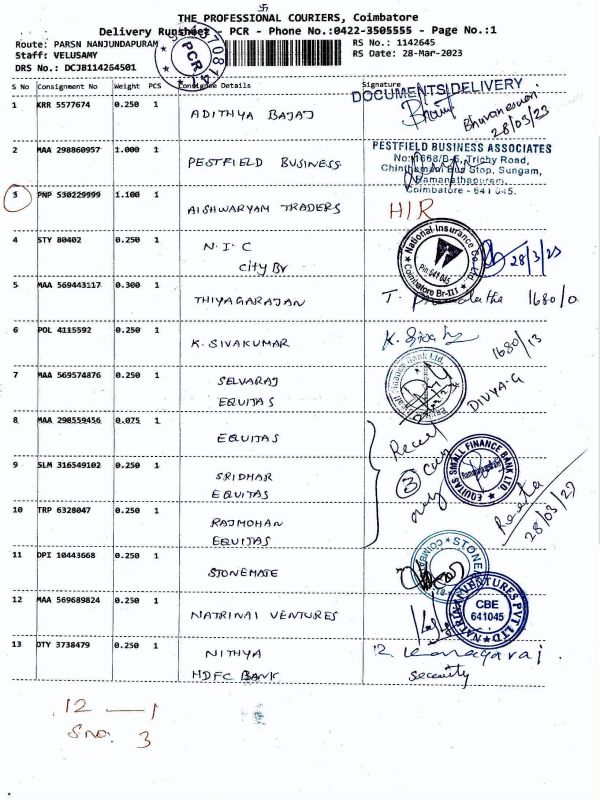 THE PROFESSIONAL COURIERS, Coimbatore
Delivery Runsheet - PCR - Phone No.:0422-3505555 - Page No.:1
Route: PARSN NANJUNDAPURAM
RS No.: 1142645
Staff: VELUSAMY
RS Date: 28-Mar-2023
DRS No.: DCJB114264501
PCR
S No Consignment No Weight PCS Consignee Details Signature
DOCUMENTS DELIVERY
1 KRR 5577674 0.250 1 ADITHYA BAJAJ
Bhuvaneswari
28/03/23
2 MAA 298860957 1.000 1 PESTFIELD BUSINESS
PESTFIELD BUSINESS ASSOCIATES
No:1668/B-5, Trichy Road,
Chinthamani Bus Stop, Sungam,
Ramanathapuram,
Coimbatore - 641 045.
3 PNP 530229999 1.100 1 AISHWARYAM TRADERS H/R
4 STY 80402 0.250 1 N.I.C
City Br
National Insurance Co. Ltd.
Pin:641 045
Coimbatore Br-III
28/3/23
5 MAA 569443117 0.300 1 THIYAGARAJAN T. 1680/0
6 POL 4115592 0.250 1 K. SIVAKUMAR K.
1680/13
7 MAA 569574876 0.250 1 SELVARAJ
EQUITAS
DIVYA.G
8 MAA 298559456 0.075 1 EQUITAS
3
EQUITAS SMALL FINANCE BANK LTD.
Ramanathapuram
9 SLM 316549102 0.250 1 SRIDHAR
EQUITAS
28/03/23
10 TRP 6328047 0.250 1 RAJMOHAN
EQUITAS
11 DPI 10443668 0.250 1 STONEMATE
12 MAA 569689824 0.250 1 NATRINAI VENTURES
NATRINAI VENTURES PVT LTD
CBE
641045
13 OTY 3738479 0.250 1 NITHYA
HDFC BANK
R. Kanagaraj
Security
12 — 1
S no. 3